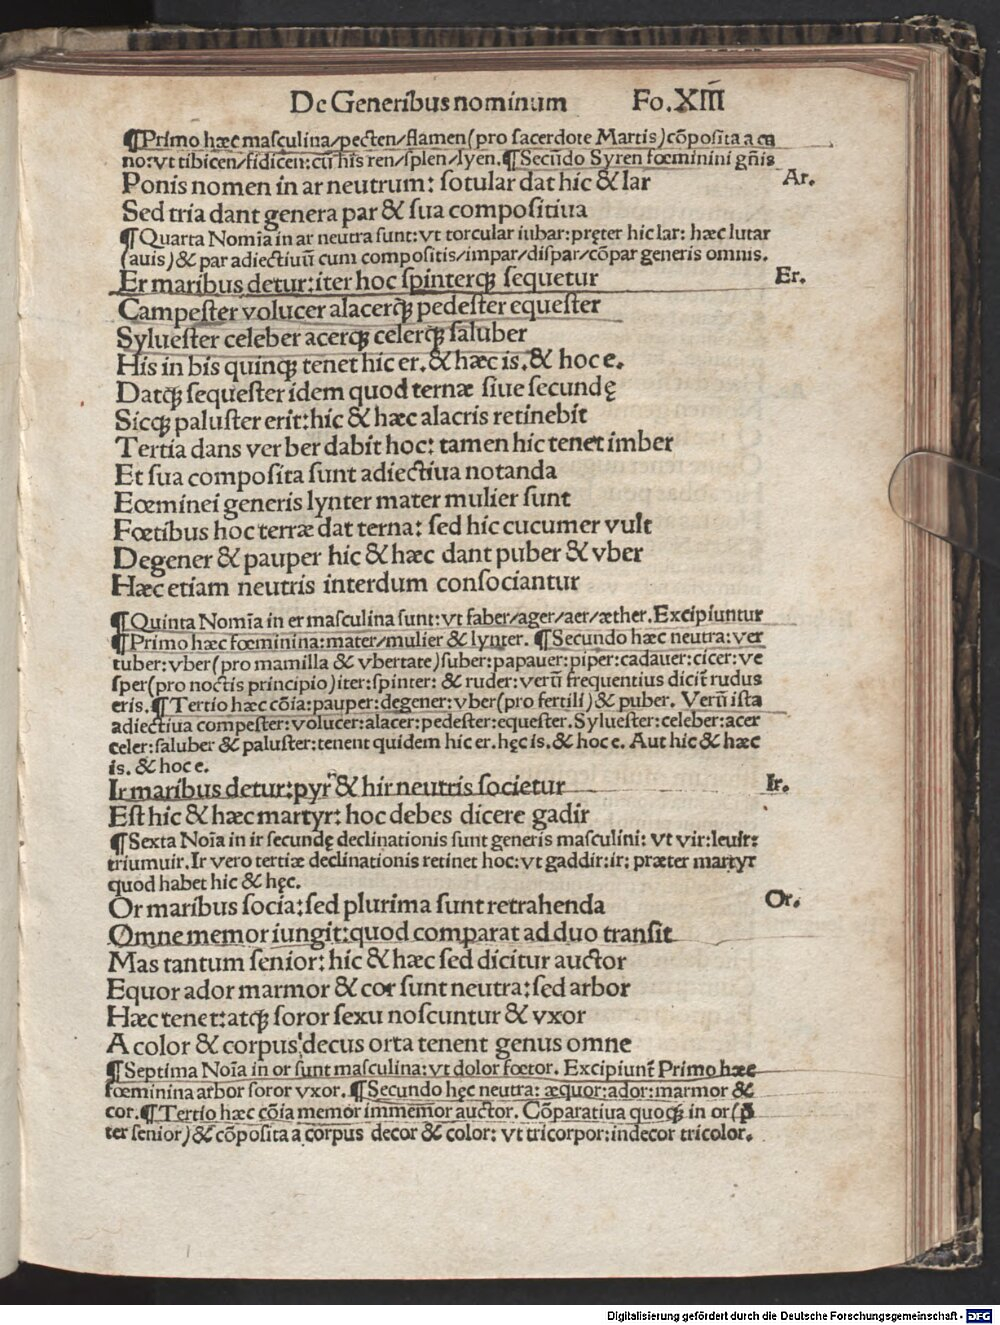 De Generibus nominum Fo.XIII
¶Primo hæc masculina/pecten/flamen(pro sacerdote Martis)cõposita a ca
no:vt tibicen/fidicen:cũ his ren/splen/lyen.¶Secũdo Syren fœminini gñis
Ponis nomen in ar neutrum: sotular dat hic & lar Ar.
Sed tria dant genera par & sua compositiua
¶Quarta Nomĩa in ar neutra sunt:vt torcular iubar:pręter hic lar: hæc lutar
(auis)& par adiectiuũ cum compositis/impar/dispar/cõpar generis omnis.
Er maribus detur:iter hoc spinterqꝫ sequetur Er.
Campester volucer alacerqꝫ pedester equester
Syluester celeber acerqꝫ celerqꝫ saluber
His in bis quinqꝫ tenet hic er.& hæc is.& hoc e.
Datqꝫ sequester idem quod ternæ siue secundę
Sicqꝫ paluster erit:hic & hæc alacris retinebit
Tertia dans ver ber dabit hoc: tamen hic tenet imber
Et sua composita sunt adiectiua notanda
Eœminei generis lynter mater mulier sunt
Fœtibus hoc terræ dat terna: sed hic cucumer vult
Degener & pauper hic & hæc dant puber & vber
Hæc etiam neutris interdum consociantur
¶Quinta Nomĩa in er masculina sunt:vt faber/ager/aer/æther.Excipiuntur
¶Primo hæc fœminina:mater/mulier & lynter. ¶Secundo hæc neutra:ver
tuber:vber(pro mamilla & vbertate)suber:papauer:piper:cadauer:cicer:ve
sper(pro noctis principio)iter:spinter: & ruder:verũ frequentius dicit̃ rudus
eris.¶Tertio hæc cõia:pauper:degener:vber(pro fertili)& puber. Verũ ista
adiectiua compester:volucer:alacer:pedester:equester.Syluester:celeber:acer
celer:saluber & paluster:tenent quidem hic er.hęc is.& hoc e. Aut hic & hæc
is. & hoc e.
Ir maribus detur:pyr & hir neutris societur Ir.
Est hic & hæc martyr: hoc debes dicere gadir
¶Sexta Noĩa in ir secundę declinationis sunt generis masculini: vt vir:leuir:
triumuir.Ir vero tertiæ declinationis retinet hoc:vt gaddir:ir: præter martyr
quod habet hic & hęc.
Or maribus socia:sed plurima sunt retrahenda Or.
Omne memor iungit:quod comparat ad duo transit
Mas tantum senior: hic & hæc sed dicitur auctor
Equor ador marmor & cor sunt neutra:sed arbor
Hæc tenet:atqꝫ soror sexu noscuntur & vxor
A color & corpus decus orta tenent genus omne
¶Septima Noĩa in or sunt masculina:vt dolor fœtor. Excipiunt̃ Primo hæc
fœminina arbor soror vxor. ¶Secundo hęc neutra: æquor:ador:marmor &
cor.¶Tertio hæc cõia memor immemor auctor. Cõparatiua quoqꝫ in or(p̃
ter senior)& cõposita a corpus decor & color: vt tricorpor:indecor tricolor.
Digitalisierung gefördert durch die Deutsche Forschungsgemeinschaft - DFG